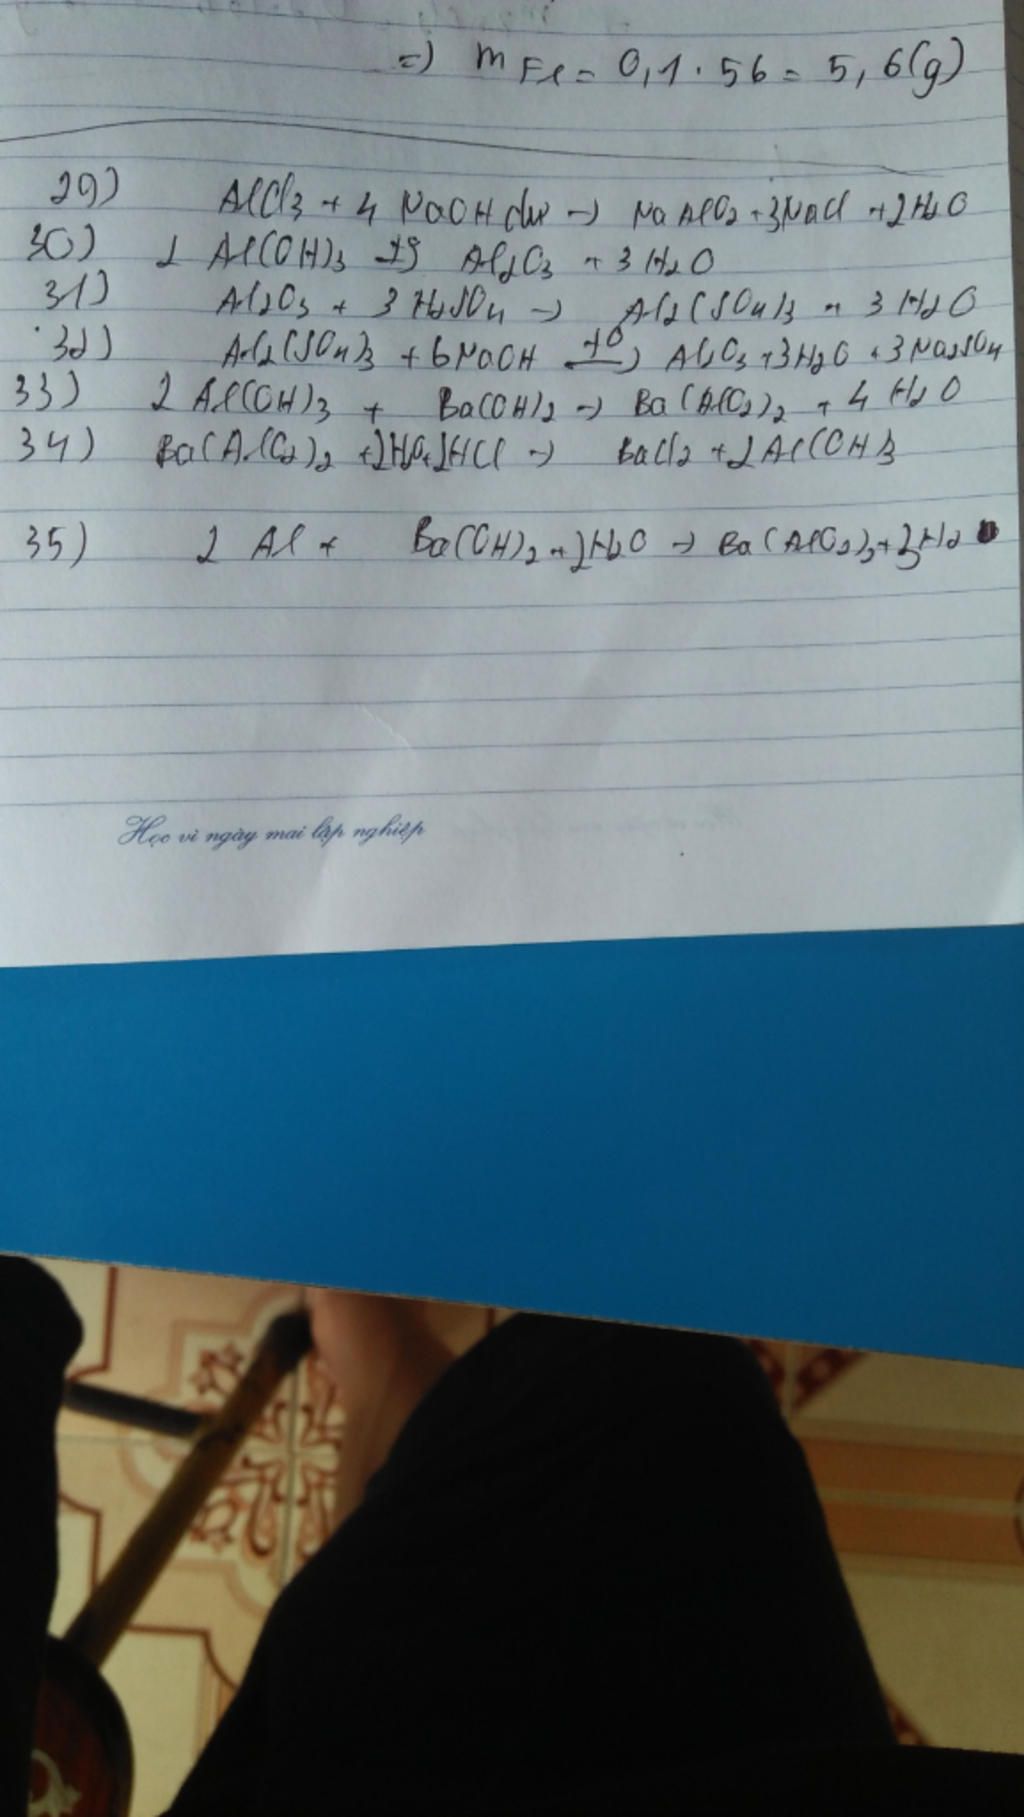 =) mFe = 0,1 . 56 = 5,6(g)
29) AlCl3 + 4 NaOH dư -> NaAlO2 + 3NaCl + 2H2O
30) 2 Al(OH)3 -> Al2O3 + 3 H2O
31) Al2O3 + 3 H2SO4 -> Al2(SO4)3 + 3 H2O
32) Al2(SO4)3 + 6 NaOH -t0-> Al2O3 + 3H2O + 3 Na2SO4
33) 2 Al(OH)3 + Ba(OH)2 -> Ba(AlO2)2 + 4 H2O
34) Ba(AlO2)2 + 2H2O + 2HCl -> BaCl2 + 2 Al(OH)3
35) 2 Al + Ba(OH)2 + 2H2O -> Ba(AlO2)2 + 3H2
Học vì ngày mai lập nghiệp